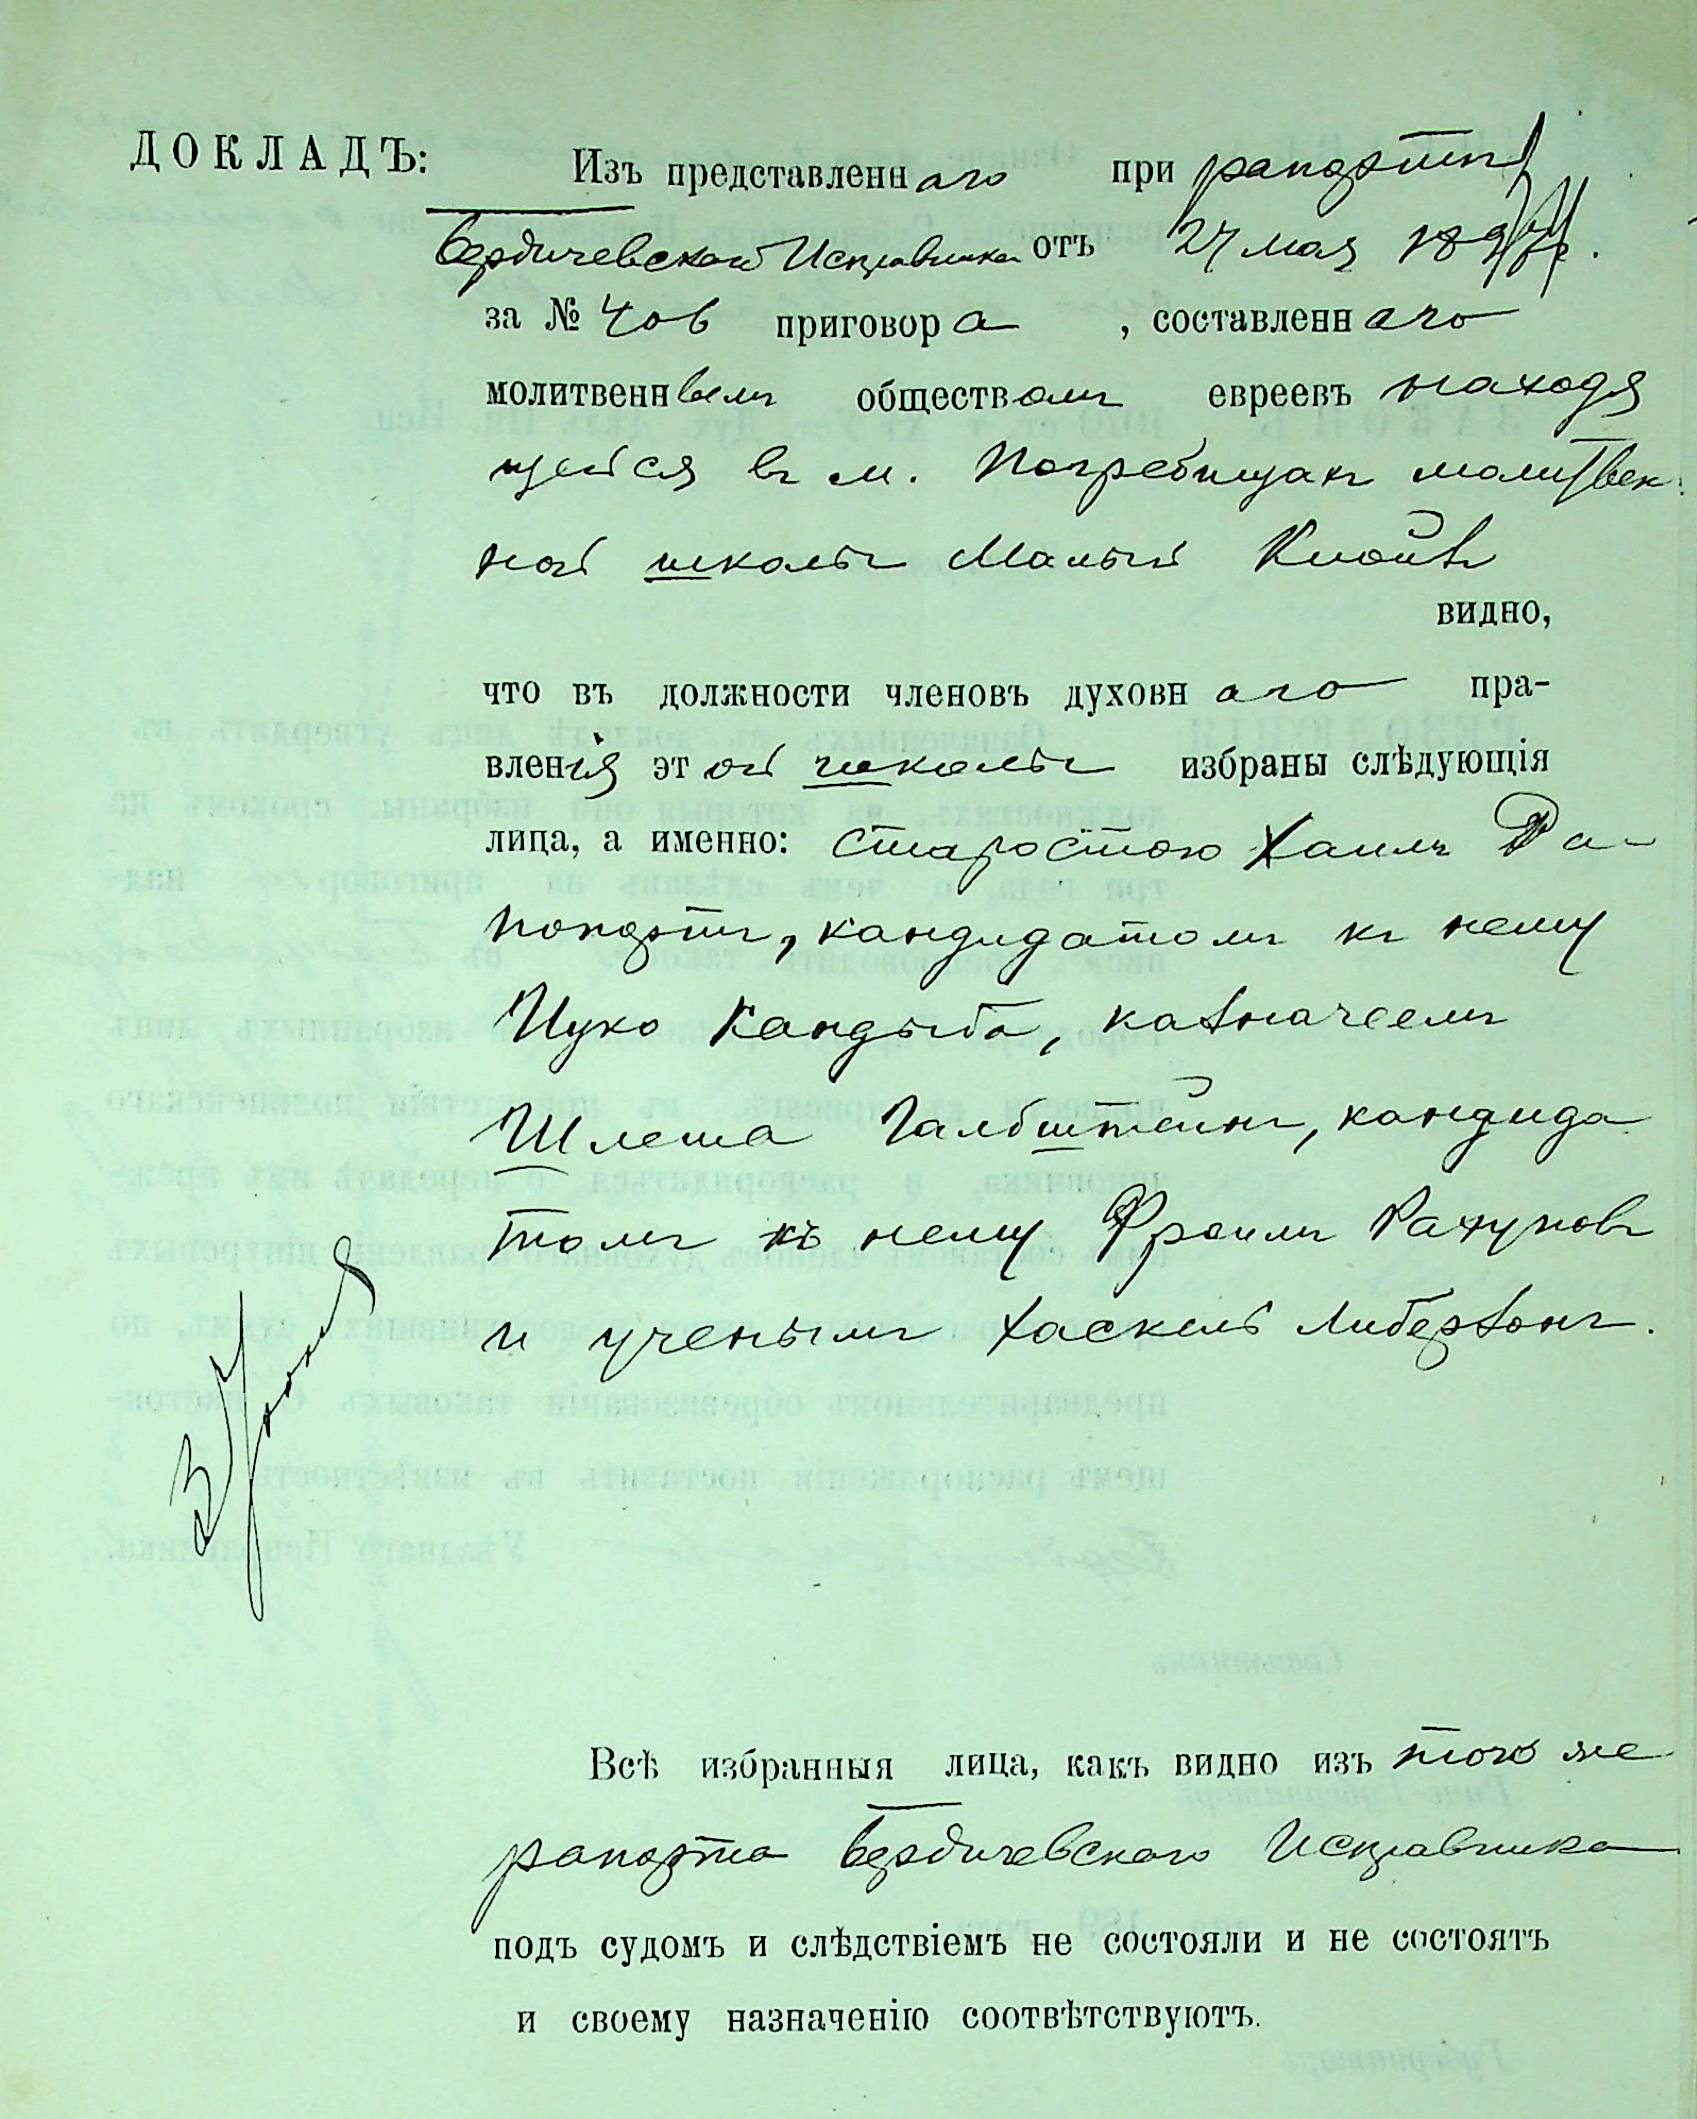 ДОКЛАДЪ: Изъ представленнаго при рапортѣ
Бердичевскаго Исправника отъ 27 мая
за № 406 приговора, составленнаго
молитвеннымъ обществомъ евреевъ находя
щейся въ м. Погребищахъ молитвен-
ной школы Малый Клойзъ
видно,
что въ должности членовъ духовнаго пра-
вленія этой школы избраны слѣдующія
лица, а именно: старостою Хаимъ Ра-
попортъ, кандидатомъ къ нему
Ицко Кандыба, казначеемъ
Шлема Галбштейнъ, кандида
томъ къ нему Фроимъ Рахуновъ
и ученымъ Хаскель Либерзонъ.
3 Июня
Всѣ избранныя лица, какъ видно изъ того же
рапорта Бердичевскаго Исправника
подъ судомъ и слѣдствіемъ не состояли и не состоятъ
и своему назначенію соотвѣтствуютъ.